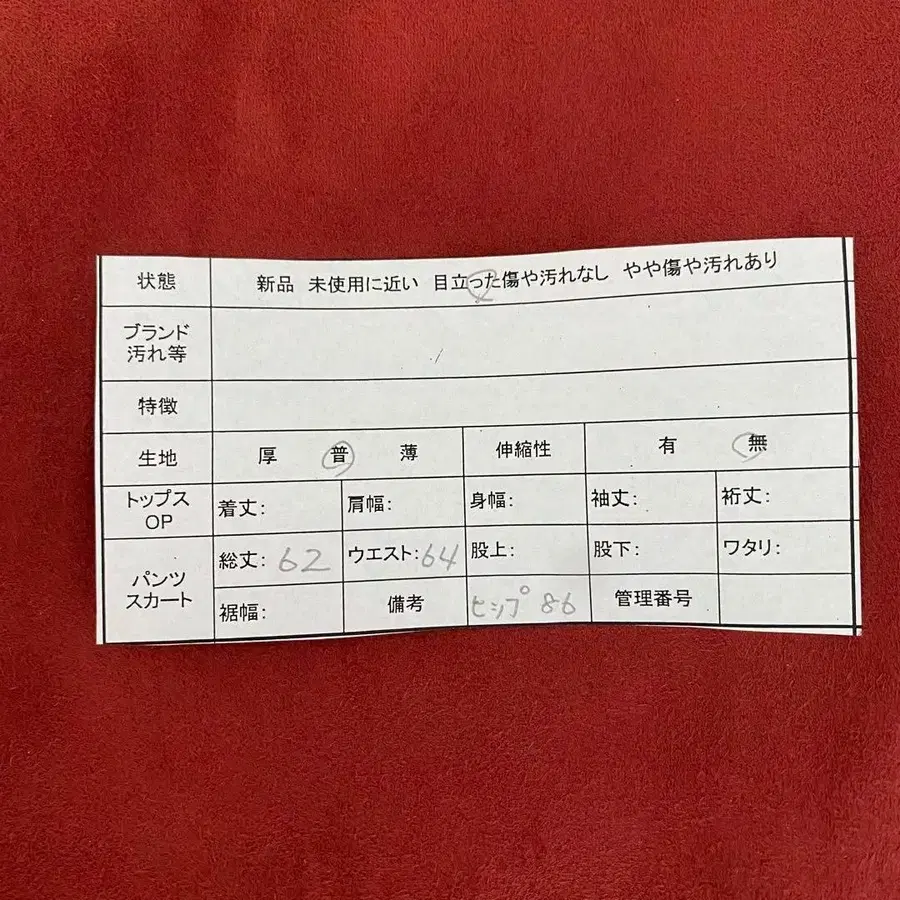 状態 新品 未使用に近い 目立った傷や汚れなし やや傷や汚れあり
ブランド
汚れ等
特徴
生地 厚 普 薄 伸縮性 有 無
トップス
OP
着丈: 肩幅: 身幅: 袖丈: 裄丈:
パンツ
スカート
総丈: 62 ウエスト: 64 股上: 股下: ワタリ:
裾幅: 備考 ヒップ 86 管理番号